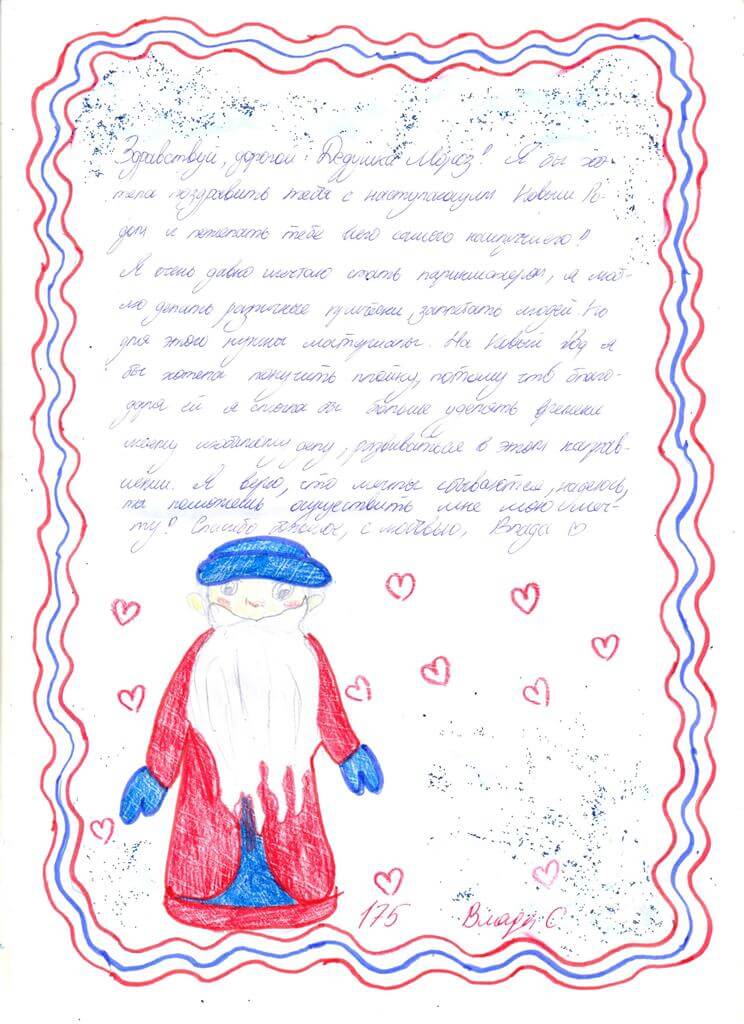 Здравствуй, дорогой Дедушка Мороз! Я бы хо-
тела поздравить тебя с наступающим Новым Го-
дом и пожелать тебе всего самого наилучшего!
Я очень давно мечтаю стать парикмахером, я люб-
лю делать различные причёски, заплетать людей. Но
для этого нужны материалы. На Новый Год я
бы хотела получить плойку, потому что благо-
даря ей я смогла бы больше уделять времени
моему любимому делу, развиваться в этом направ-
лении. Я верю, что мечты сбываются, надеюсь,
ты поможешь осуществить мне мою меч-
ту! Спасибо большое, с любовью, Влада ♡
175 Влада С